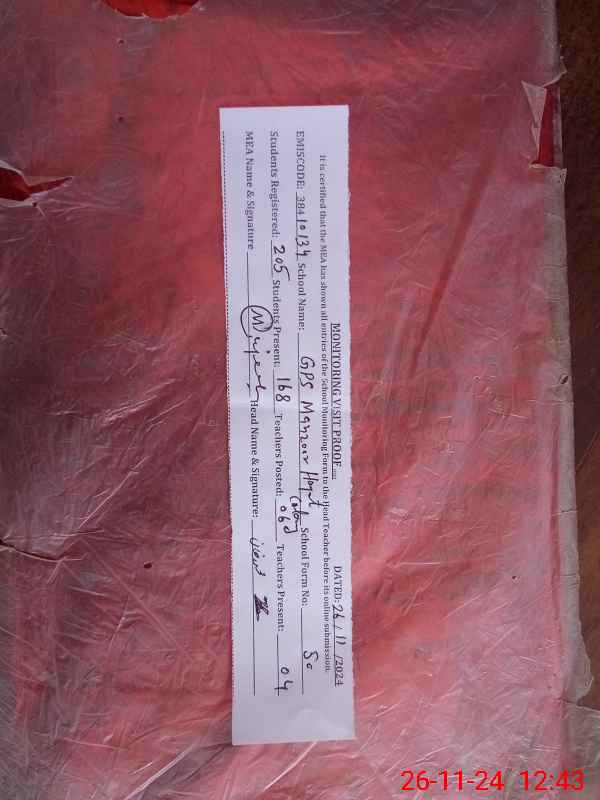 MONITORING VISIT PROOF
DATED: 26/11/2024
It is certified that the MEA has shown all entries of the School Monitoring Form to the Head Teacher before its online submission.
EMISCODE: 38410134 School Name: GPS Manzoor Hayat Colony School Form No: 50
Students Registered: 205 Students Present: 168 Teachers Posted: 06 Teachers Present: 04
MEA Name & Signature Head Name & Signature:
26-11-24 12:43